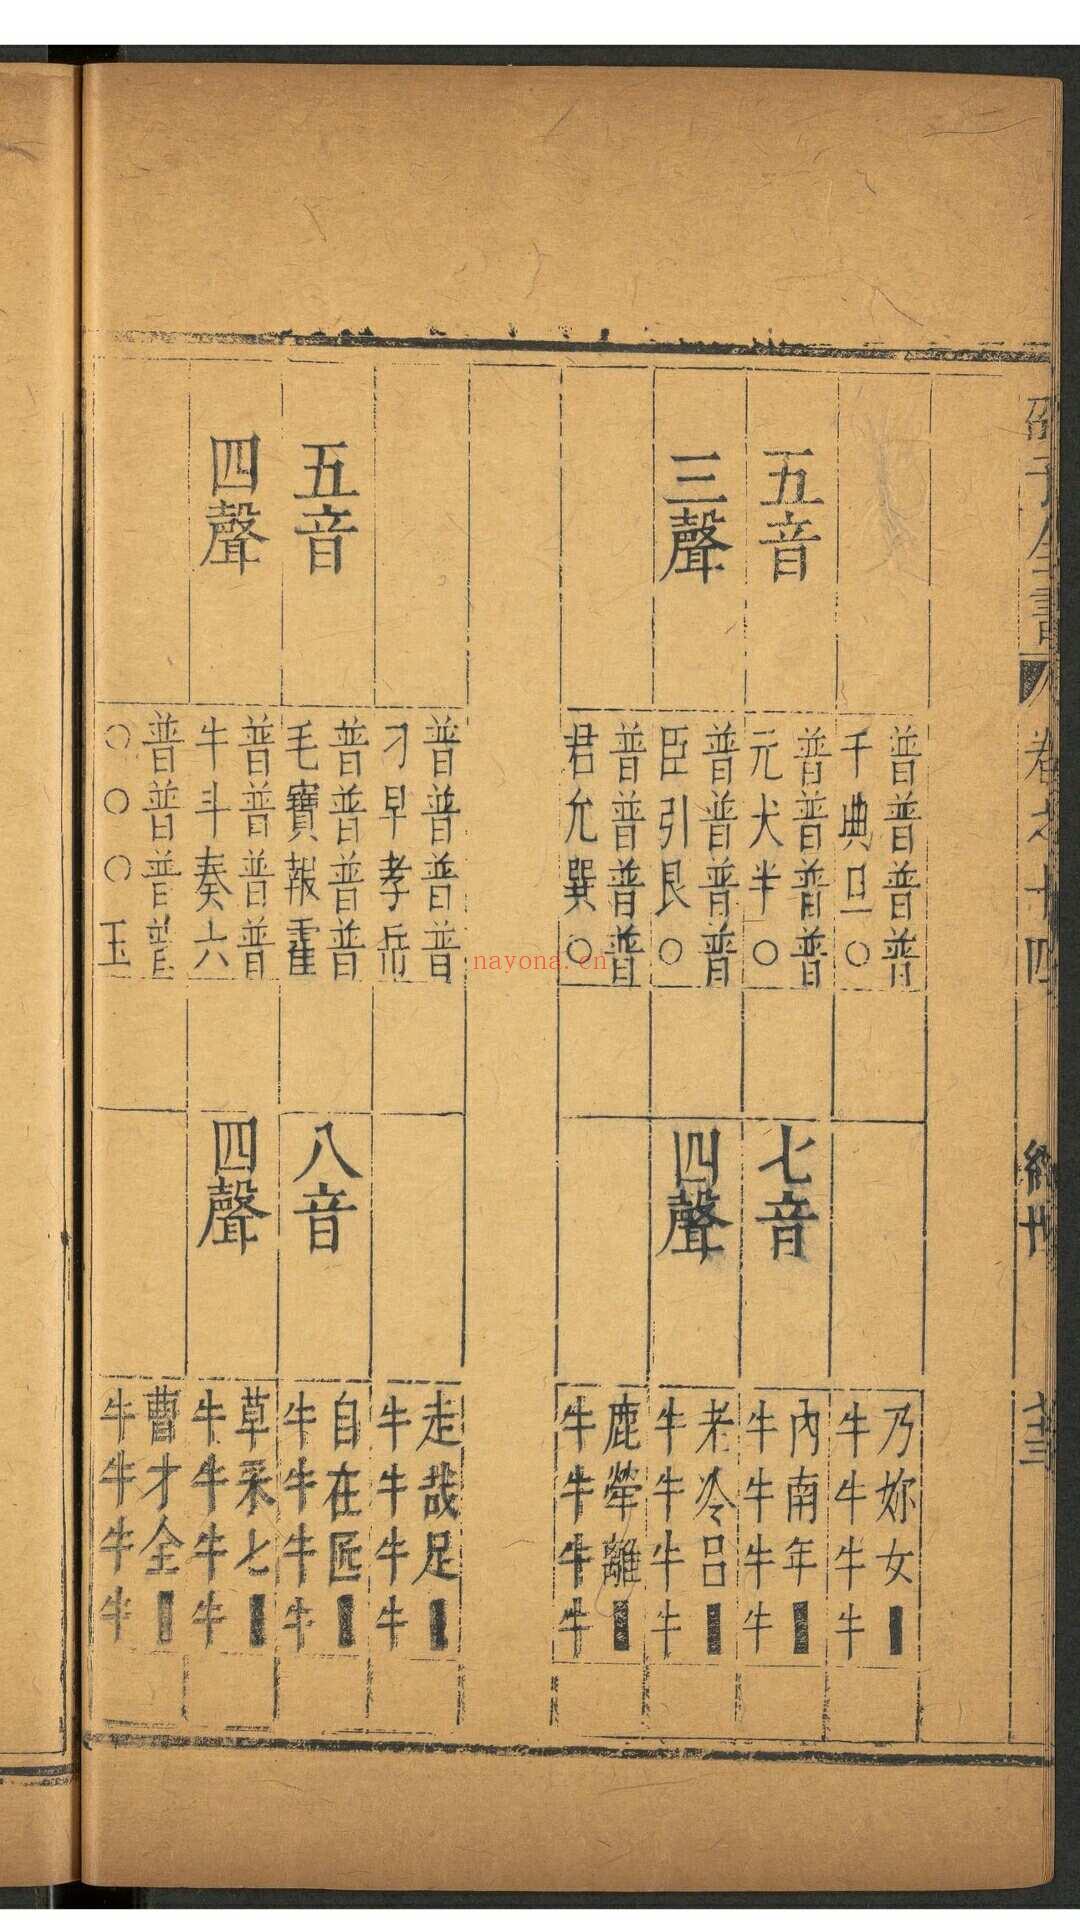 邵子全書
卷之十四
經世
五音
三聲
普普普普
千典旦○
普普普普
元犬半○
普普普普
臣引艮○
普普普普
君允巽○
七音
四聲
乃妳女▮
牛牛牛牛
內南年▮
牛牛牛牛
老冷呂▮
牛牛牛牛
鹿犖離▮
牛牛牛牛
五音
四聲
普普普普
刀早孝岳
普普普普
毛寶報霍
普普普普
牛斗奏六
普普普普
○○○玉
八音
四聲
走哉足▮
牛牛牛牛
自在匠▮
牛牛牛牛
草采七▮
牛牛牛牛
曹才全▮
牛牛牛牛
nayona.cn